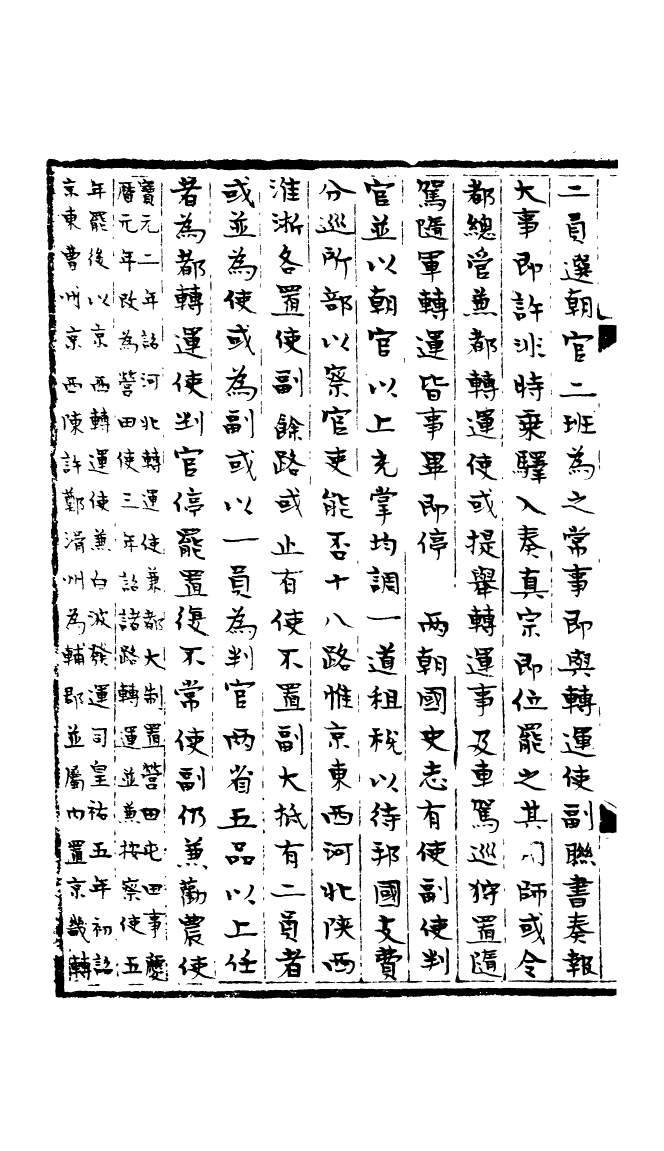 二員選朝官二班為之常事即與轉運使副聯書奏報
大事即許非時乗驛入奏真宗即位罷之其用師或令
都總管兼都轉運使或提舉轉運事及車駕巡狩置隨
駕隨軍轉運皆事畢即停　兩朝國史志有使副使判
官並以朝官以上充掌均調一道租税以待邦國支費
分巡所部以察官吏能否十八路惟京東西河北陝西
淮淅各置使副餘路或止有使不置副大抵有二員者
或並為使或為副或以一員為判官兩省五品以上任
者為都轉運使判官停罷置復不常使副仍兼勸農使
寶元二年詔河北轉運使兼都大制置營田屯田事慶
曆元年改為營田使三年詔諸路轉運並兼按察使五
年罷後以京西轉運使兼白波發運司皇祐五年初詔
京東曹州京西陳許鄭滑州為輔郡並屬內置京畿轉